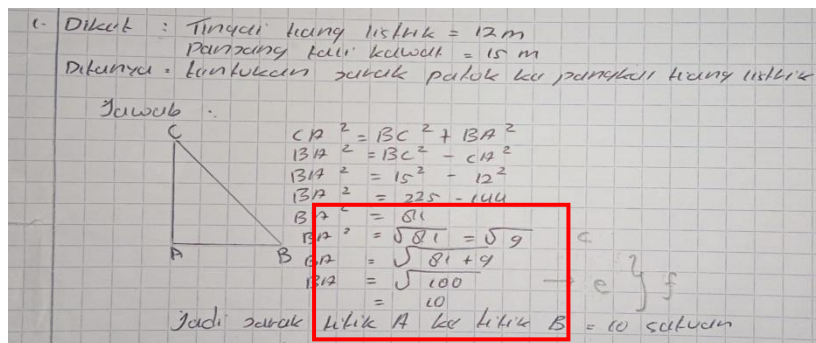 1. Diket : Tinggi tiang listrik = 12 m
Panjang tali kawat = 15 m
Ditanya : tentukan jarak patok ke pangkal tiang listrik
Jawab :
C
CA² = BC² + BA²
BA² = BC² - CA²
BA² = 15² - 12²
BA² = 225 - 144
BA² = 81
BA² = √81 = √9 c
A B
BA = √81 + 9
BA = √100 → e } f
= 10
Jadi jarak titik A ke titik B = 10 satuan